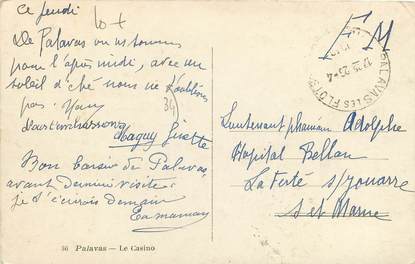 Ce jeudi
De Palavas où ns sommes
pour l'après midi, avec un
soleil d'été nous ne t'oublions
pas. Nous
t'embrassons
Maguy Ginette
Bon baiser de Palavas,
avant dernière visite
je t'écrirais demain
Ta maman
FM
PALAVAS LES FLOTS
Lieutenant pharmacien Adolphe
Hopital Bellan
La Ferté s/Jouarre
S et Marne
36 Palavas — Le Casino